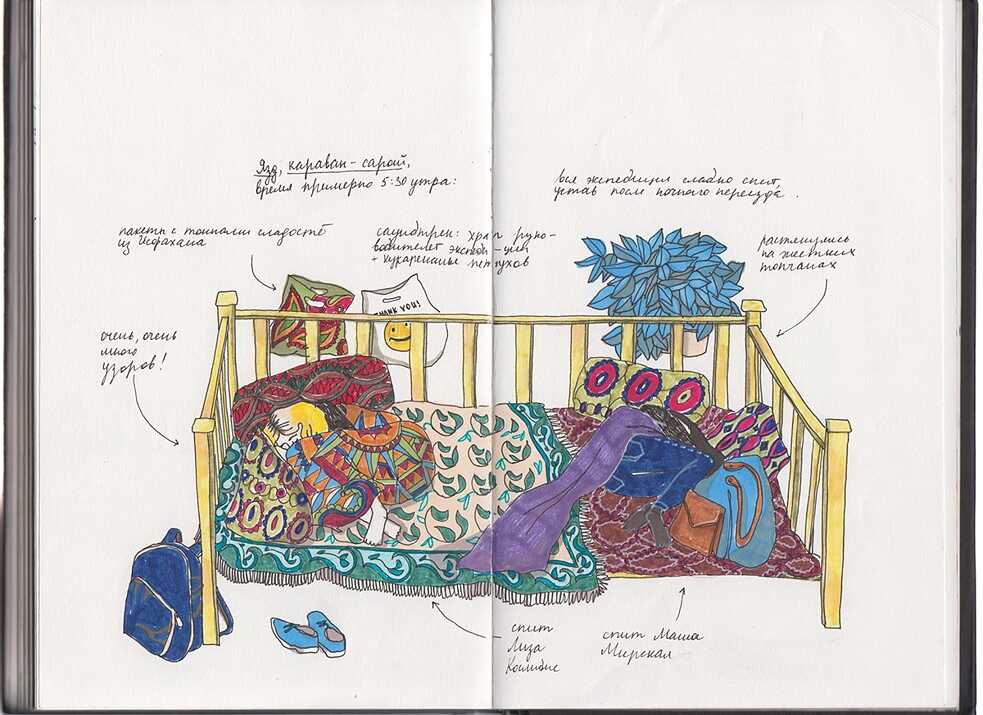 Язд, караван-сарай,
время примерно 5:30 утра:
вся экспедиция сладко спит,
устав после ночного переезда.
пакеты с тоннами сладостей
из Исфахана
саундтрек: храп руко-
водителей экспеди-ции
+ кукареканье петухов
растянулись
на жестких
топчанах
THANK YOU!
очень, очень
много
узоров!
спит
Лиза
спит Маша
Мирская